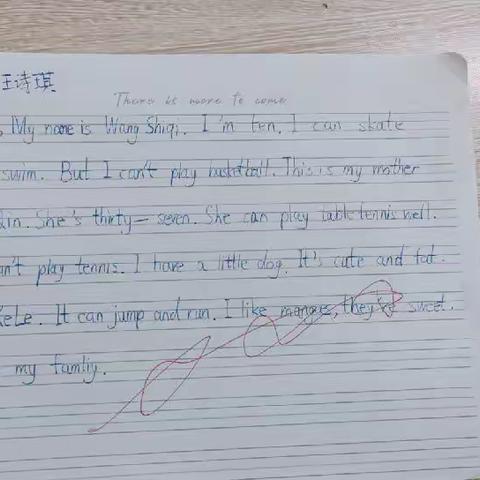 王诗琪
There is more to come
My name is Wang Shiqi. I'm ten. I can skate
swim. But I can't play basketball. This is my mother
She's thirty-seven. She can play table tennis well.
an't play tennis. I have a little dog. It's cute and fat.
KeLe. It can jump and run. I like mangoes, they're sweet.
my famliy.